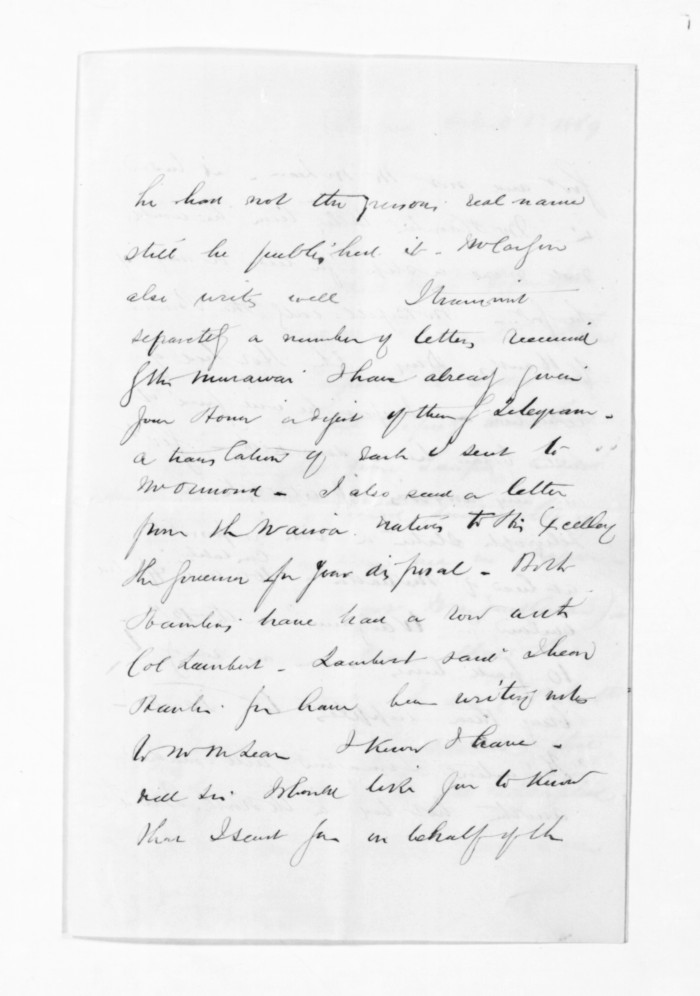 he had not the persons real name
still he published it - McCarzon
also writes well I transmit
separately a number of letters received
by the Murawai I have already given
your Honor a digest of them by Telegram -
a translation of each is sent to
Mr Ormond - I also send a letter
from the Wairoa natives to His Excellency
the Governor for your disposal - Both
Hamlins have had a row with
Col Lambert - Lambert said I hear
Hamlin you have been writing notes
to Mr McLean I know I have -
well sir I should like you to know
that I sent you on behalf of the